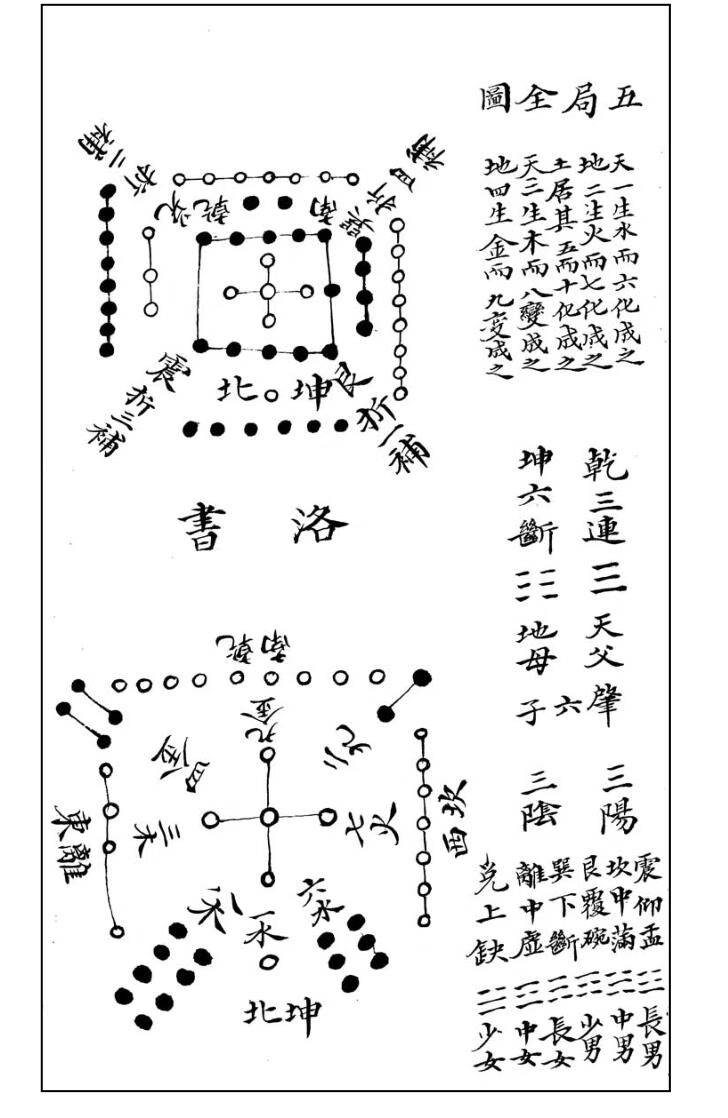 五局全圖
天一生水而六化成之
地二生火而七化成之
土居其五而十化成之
天三生木而八變成之
地四生金而九變成之
乾三連 ☰ 天父肇
坤六斷 ☷ 地母
六子
三陽
三陰
震仰盂 ☳ 長男
坎中滿 ☵ 中男
艮覆碗 ☶ 少男
巽下斷 ☴ 長女
離中虛 ☲ 中女
兌上缺 ☱ 少女
南乾
兌
折二補
巽折四補
震折三補
艮折一補
坤北
洛書
南乾
九金
四金
東離
三木
七火
西坎
一水
六水
坤北